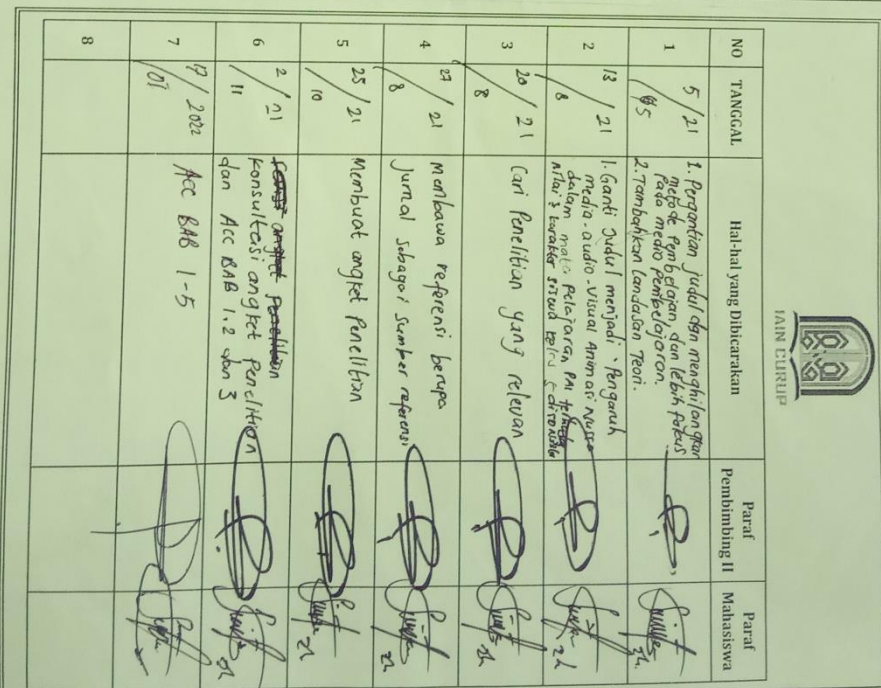 IAIN CURUP
NO
TANGGAL
Hal-hal yang Dibicarakan
Paraf
Pembimbing II
Paraf
Mahasiswa
1
5/21
1. Pergantian judul dan menghilangkan
metode Pembelajaran dan lebih fokus
Pada media Pembelajaran.
2. Tambahkan Landasan Teori.
2
13/21
8
1. Ganti Judul menjadi "Pengaruh
media-audio-visual Animasi Nussa
dalam mata Pelajaran PAI
nilai karakter siswa kelas 5
3
20/21
8
Cari Penelitian yang relevan
4
27/21
8
Membawa referensi berupa
Jurnal Sebagai Sumber referensi
5
25/21
10
Membuat angket Penelitian
6
2/21
11
Konsultasi angket Penelitian
dan Acc BAB 1.2 dan 3
7
17/2022
01
Acc BAB 1-5
8